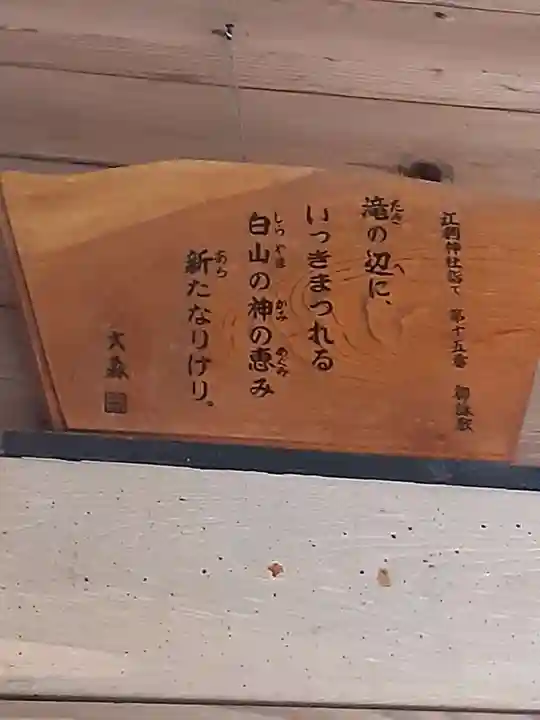 江刺神社詣で 第十五番 御詠歌
滝の辺に、
いつきまつれる
白山の神の恵み
新たなりけり。
大森